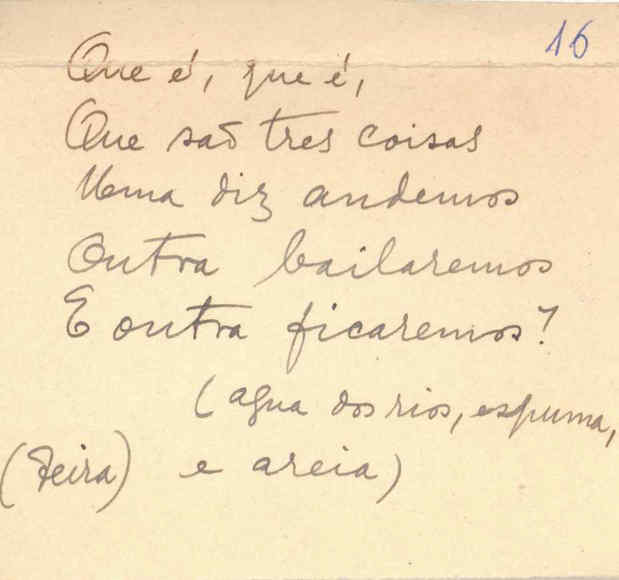 16
Que é, que é,
Que são tres coisas
Uma diz andemos
Outra bailaremos
E outra ficaremos?
(agua dos rios, espuma,
(Feira) e areia)